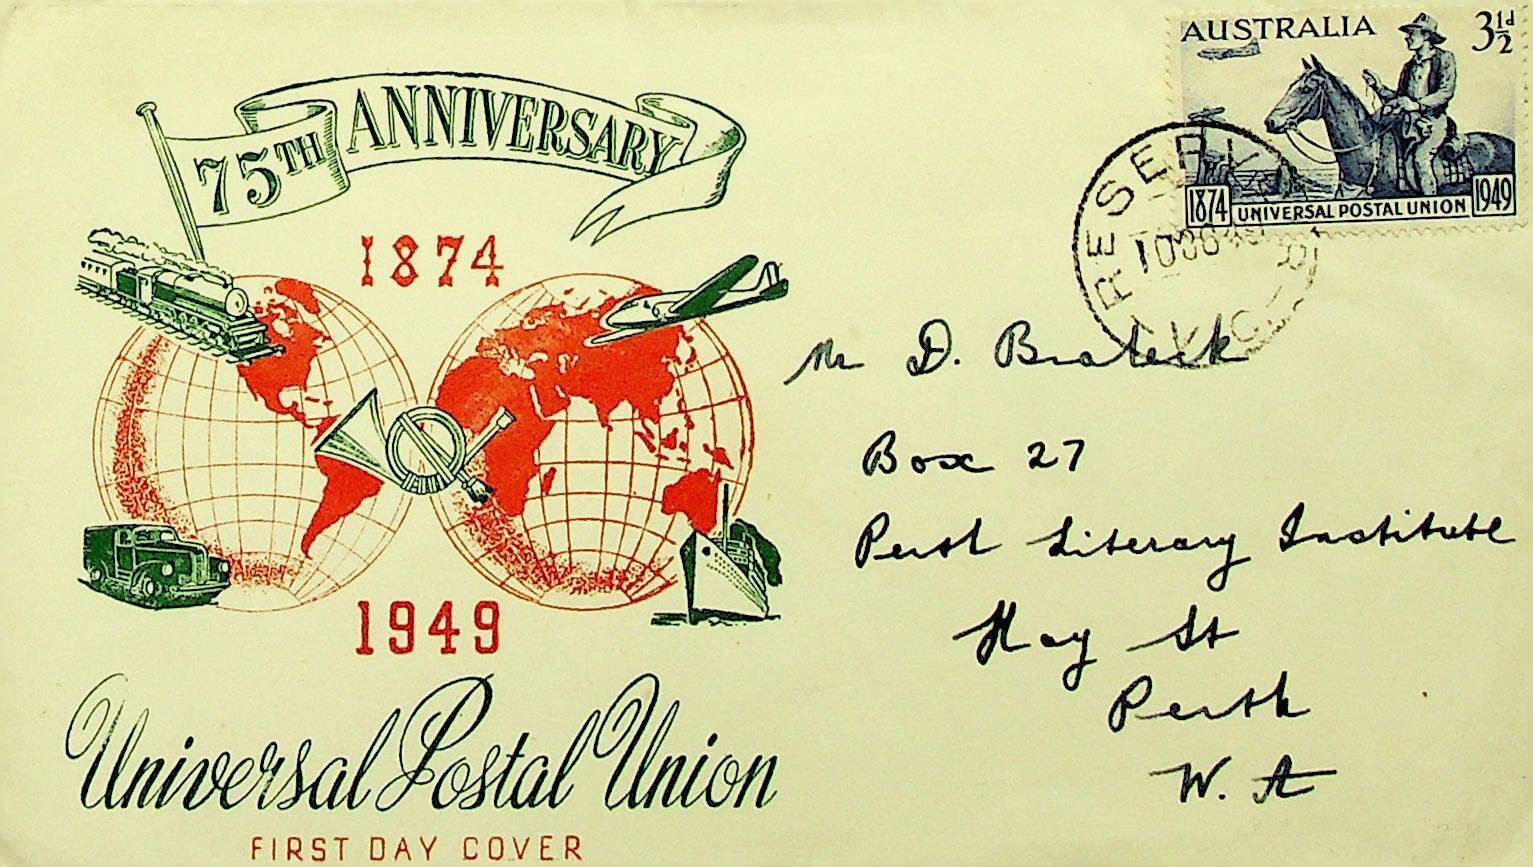 75TH ANNIVERSARY
1874
1949
Universal Postal Union
FIRST DAY COVER
AUSTRALIA 3½d
1874 UNIVERSAL POSTAL UNION 1949
RESERVE
VIC
Mr D.
Box 27
Perth Literary Institute
Hay St
Perth
W. A